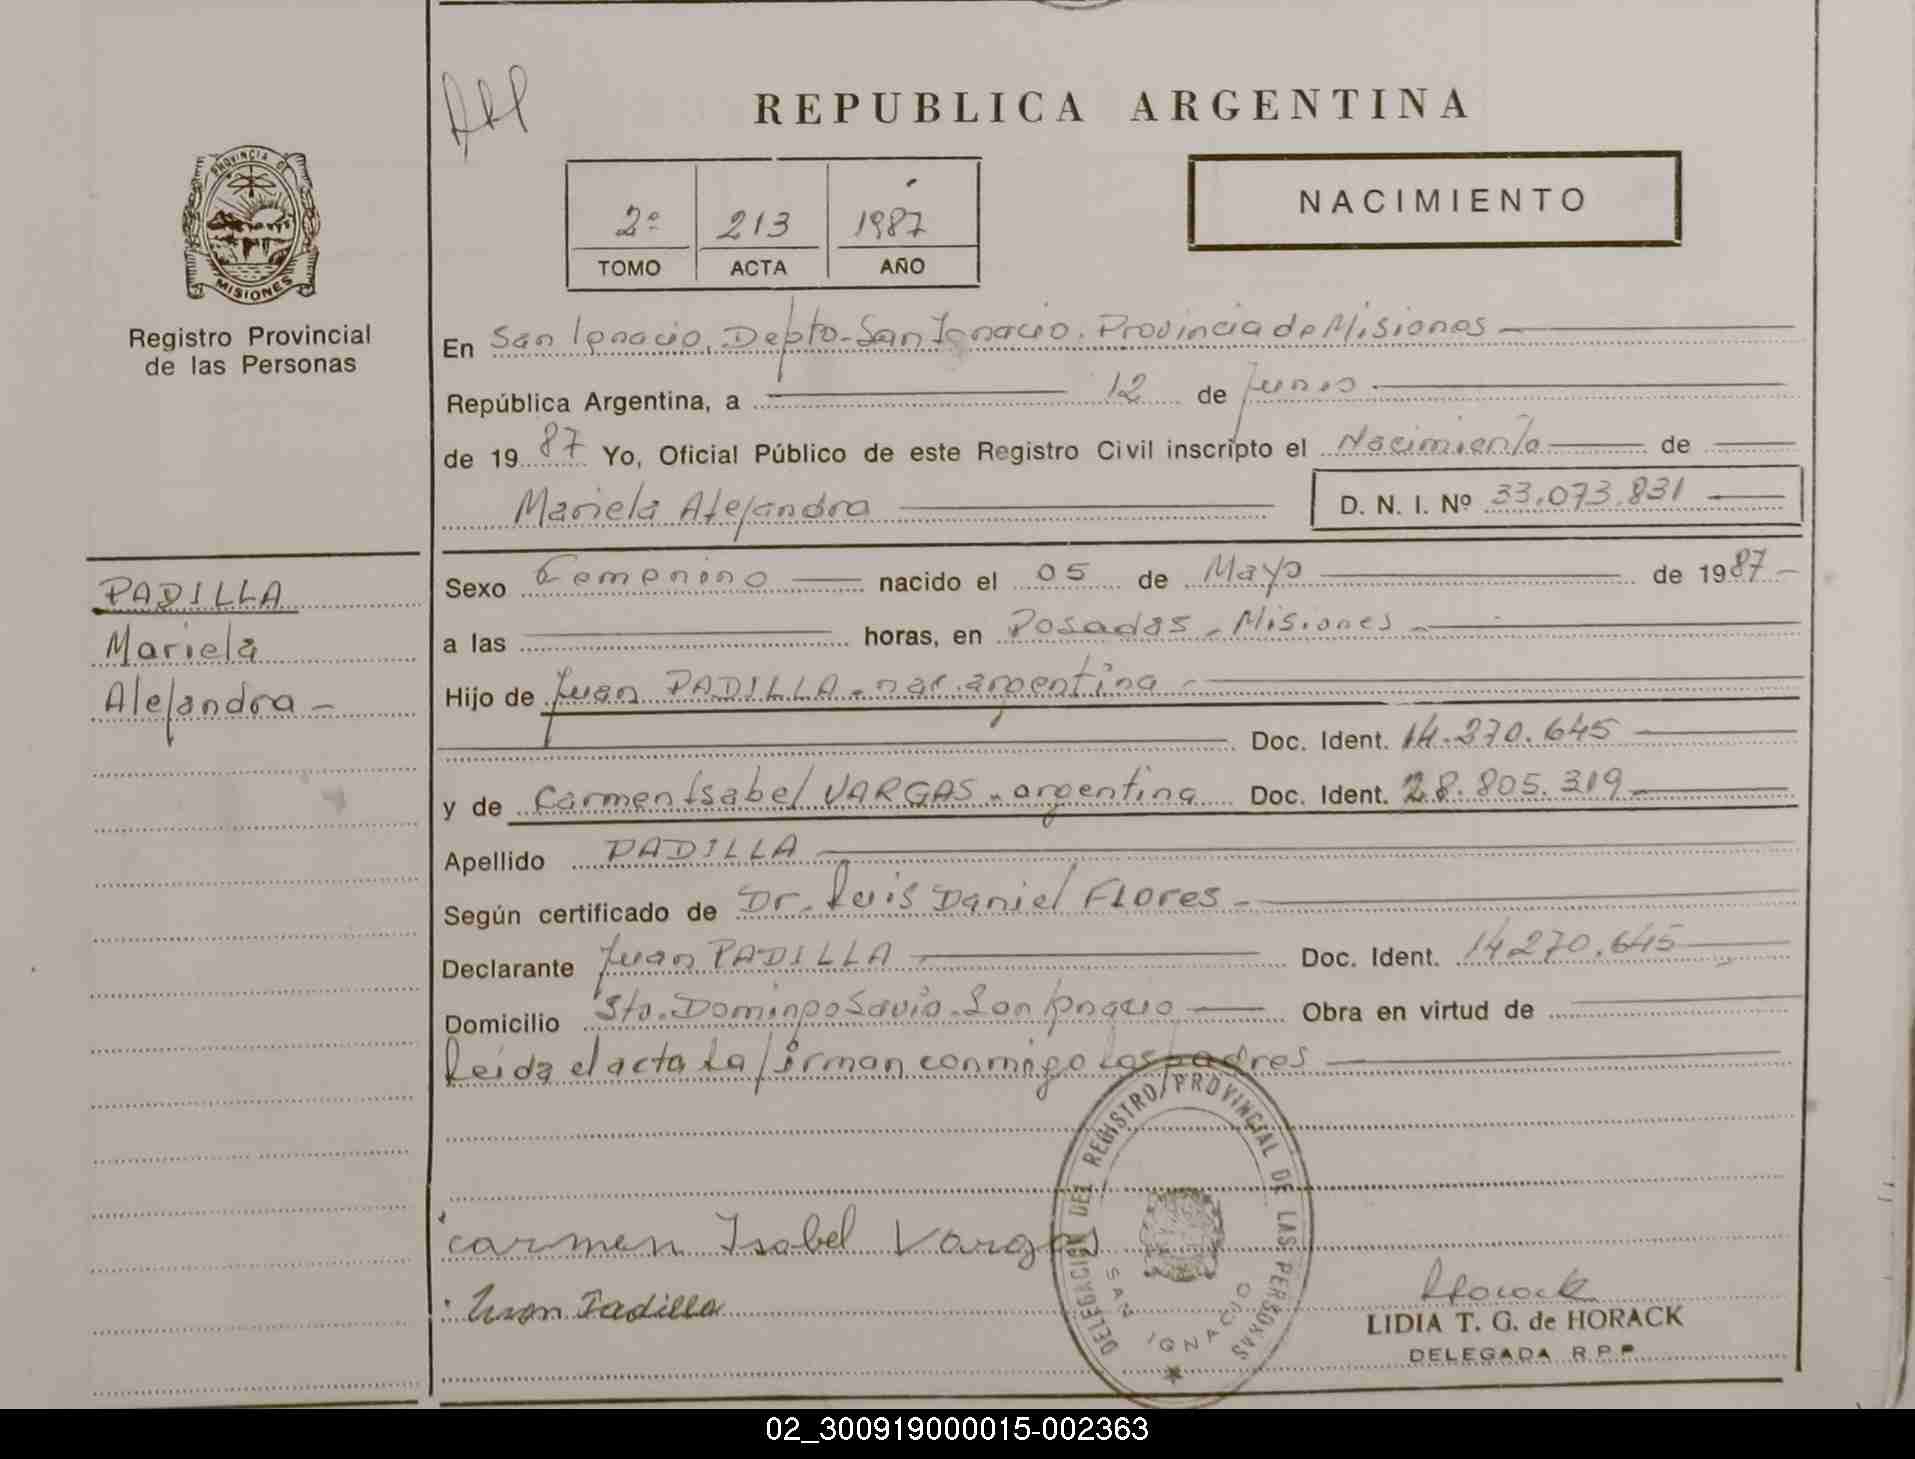 REPUBLICA ARGENTINA
PROVINCIA DE
MISIONES
Registro Provincial
de las Personas
2º 213 1987
TOMO ACTA AÑO
NACIMIENTO
En San Ignacio, Depto-San Ignacio. Provincia de Misiones
República Argentina, a 12 de Junio
de 1987 Yo, Oficial Público de este Registro Civil inscripto el Nacimiento de
Mariela Alejandra D. N. I. Nº 33.073.831
PADILLA
Mariela
Alejandra -
Sexo Femenino nacido el 05 de Mayo de 1987-
a las horas, en Posadas - Misiones -
Hijo de Juan PADILLA - nac. argentina -
Doc. Ident. 14.270.645
y de Carmen Isabel VARGAS - argentina Doc. Ident. 28.805.319
Apellido PADILLA
Según certificado de Dr. Luis Daniel FLORES -
Declarante Juan PADILLA Doc. Ident. 14270.645
Domicilio Sto. Domingo Savio - San Ignacio Obra en virtud de
Leída el acta la firman conmigo los padres
DELEGACION DEL REGISTRO PROVINCIAL DE LAS PERSONAS
SAN IGNACIO
carmen Isabel Vargas
Juan Padilla
LHorack
LIDIA T. G. de HORACK
DELEGADA R.P.P.
02_300919000015-002363